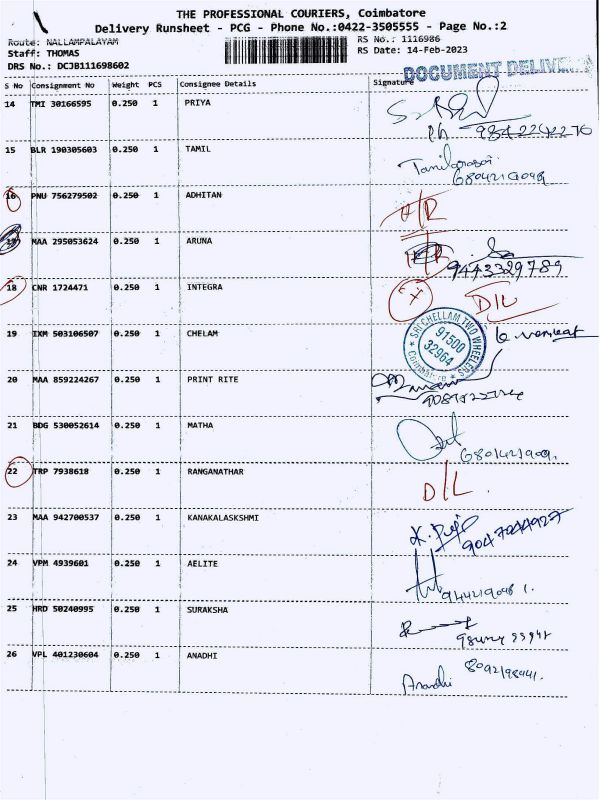 THE PROFESSIONAL COURIERS, Coimbatore
Delivery Runsheet - PCG - Phone No.:0422-3505555 - Page No.:2
Route: NALLAMPALAYAM RS No.: 1116986
Staff: THOMAS RS Date: 14-Feb-2023
DRS No.: DCJB111698602
DOCUMENT
S No Consignment No Weight PCS Consignee Details Signature
14 TMI 30166595 0.250 1 PRIYA
Ph 9842242270
15 BLR 190305603 0.250 1 TAMIL
16 PNU 756279502 0.250 1 ADHITAN
MAA 295053624 0.250 1 ARUNA
9443329789
18 CNR 1724471 0.250 1 INTEGRA D/L
19 IXM 503106507 0.250 1 CHELAM
SRI CHELLAM TWO WHEELERS
91500
32964
Coimbatore
20 MAA 859224267 0.250 1 PRINT RITE
21 BDG 530052614 0.250 1 MATHA
22 TRP 7938618 0.250 1 RANGANATHAR
D/L
23 MAA 942700537 0.250 1 KANAKALASKSHMI
9047044927
24 VPM 4939601 0.250 1 AELITE
25 HRD 50240995 0.250 1 SURAKSHA
26 VPL 401230604 0.250 1 ANADHI
Anandhi